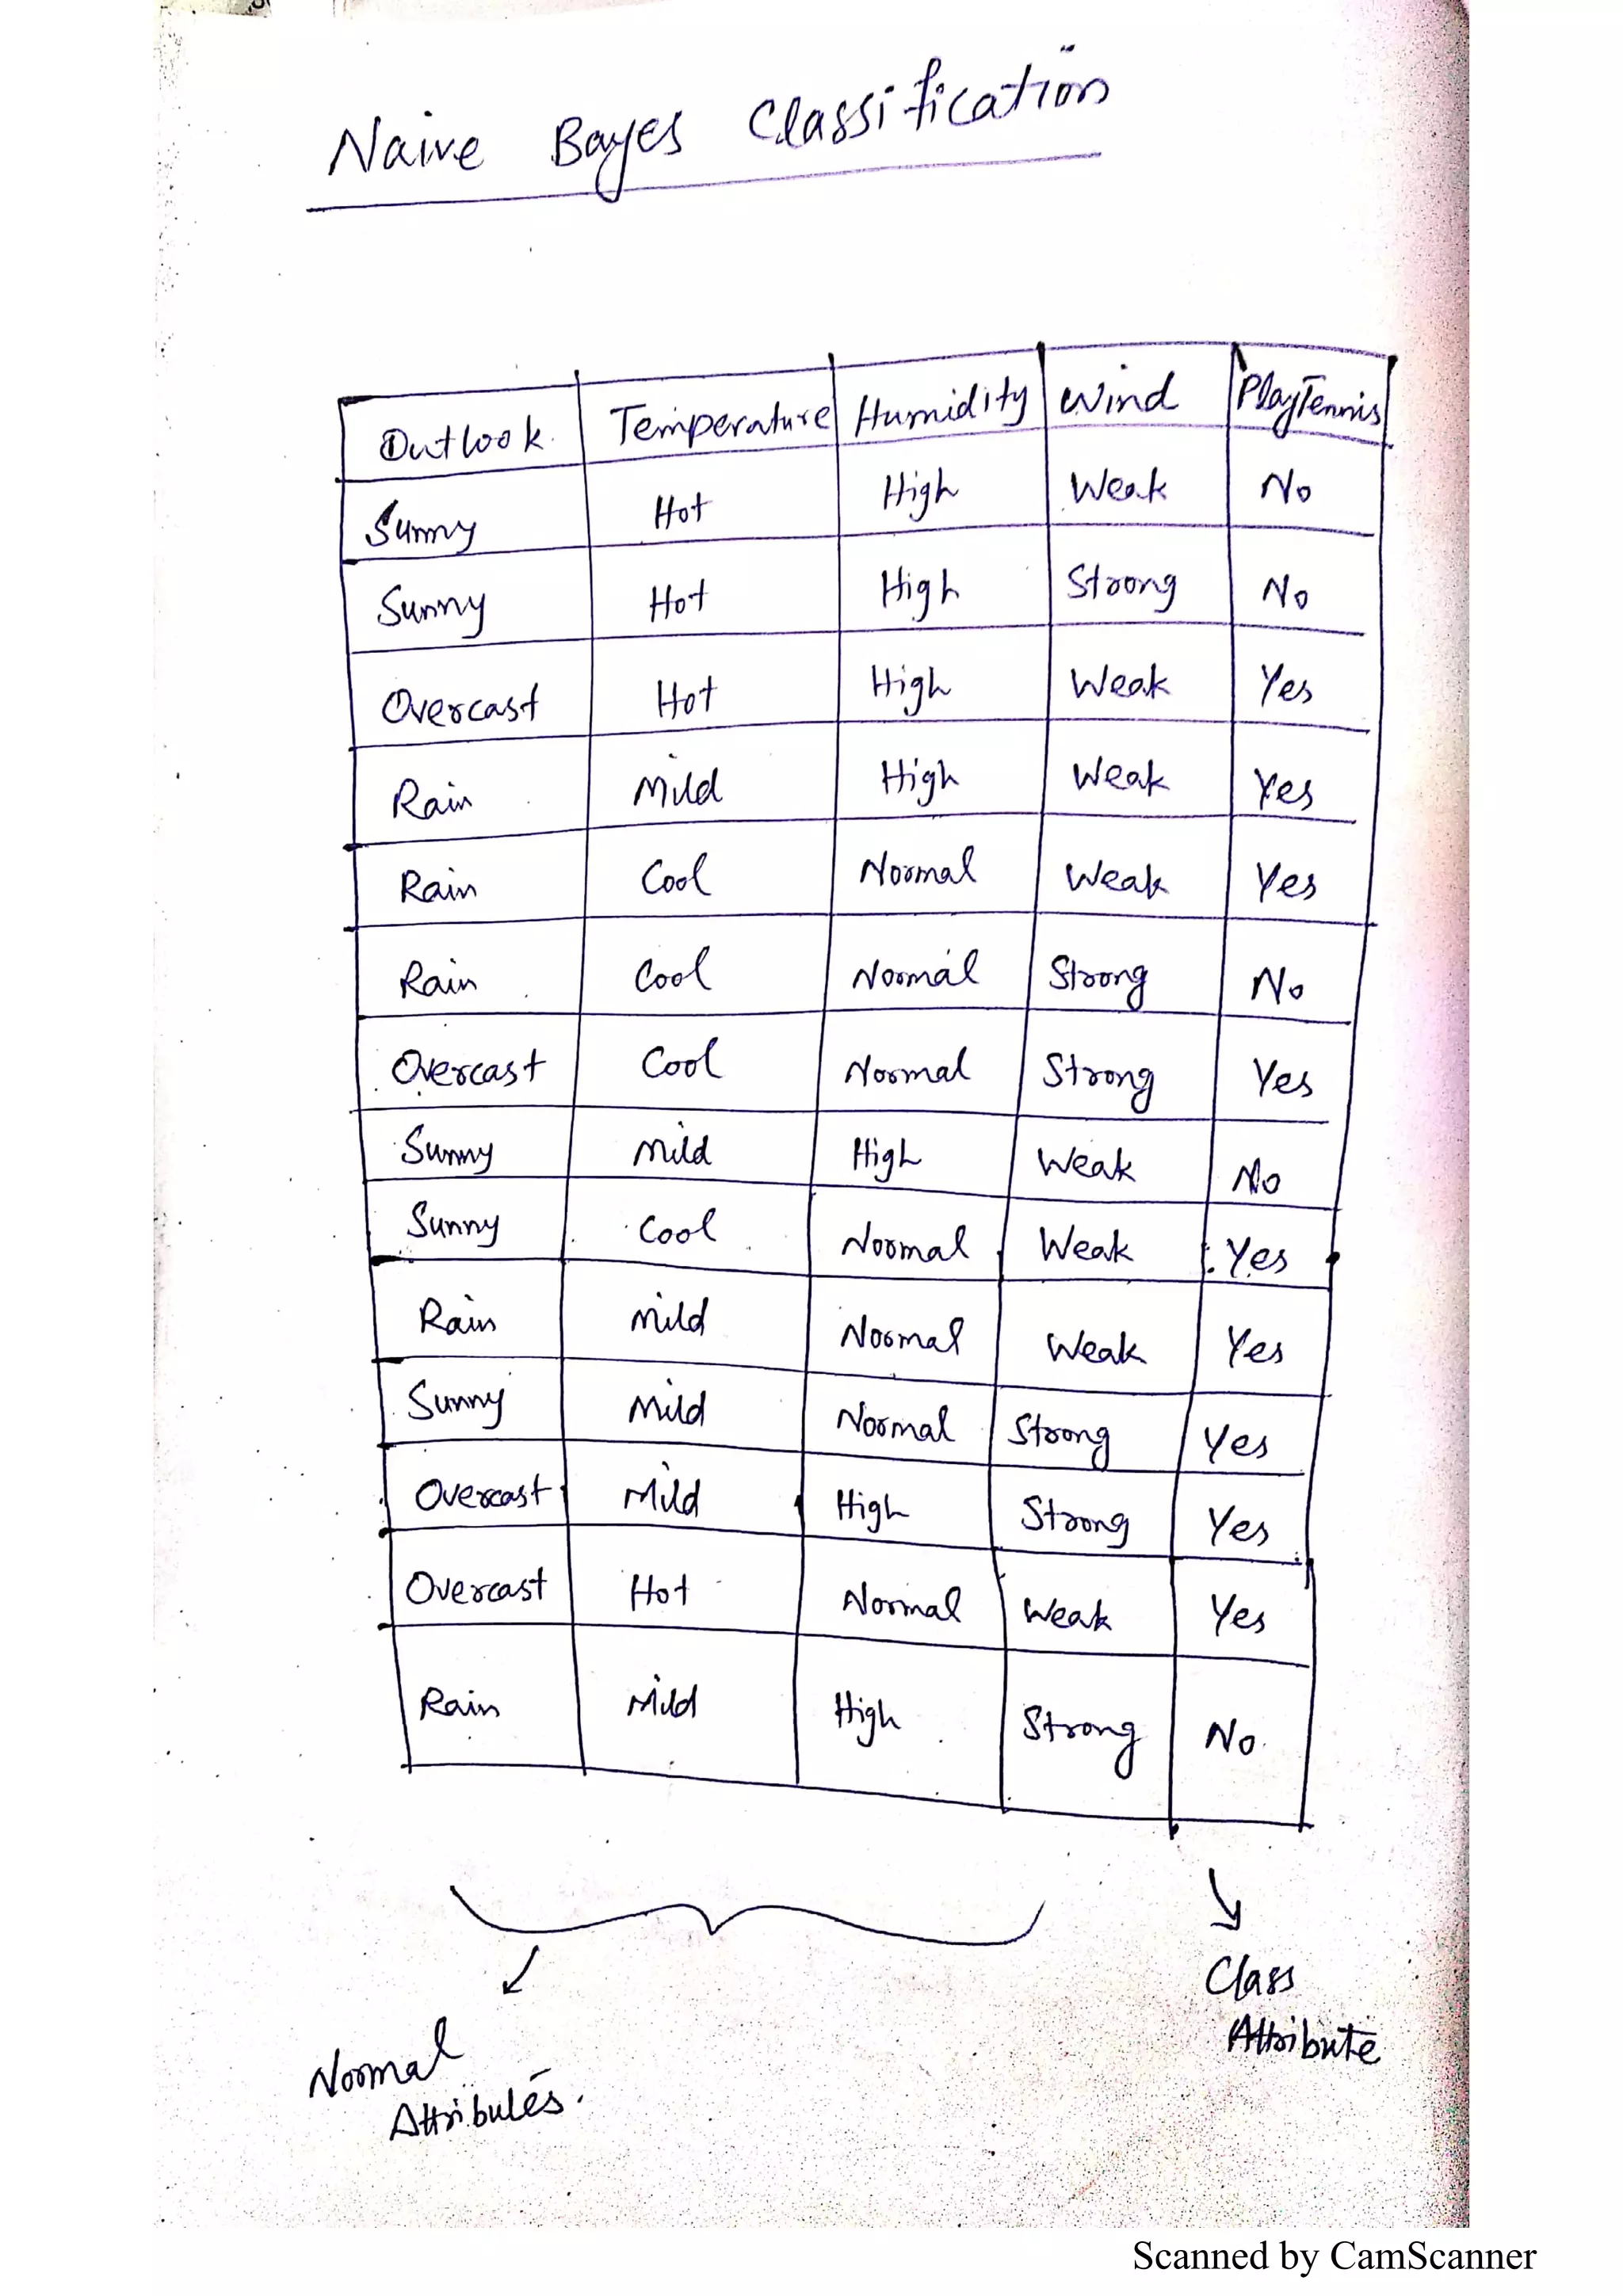 Naive Bayes Classification
Outlook Temperature Humidity Wind PlayTennis
Sunny Hot High Weak No
Sunny Hot High Strong No
Overcast Hot High Weak Yes
Rain Mild High Weak Yes
Rain Cool Normal Weak Yes
Rain Cool Normal Strong No
Overcast Cool Normal Strong Yes
Sunny Mild High Weak No
Sunny Cool Normal Weak Yes
Rain Mild Normal Weak Yes
Sunny Mild Normal Strong Yes
Overcast Mild High Strong Yes
Overcast Hot Normal Weak Yes
Rain Mild High Strong No
Normal
Attributes.
Class
Attribute
Scanned by CamScanner